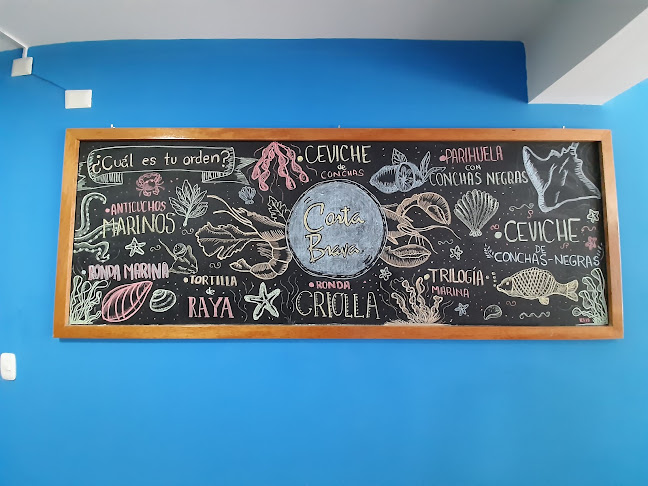 ¿Cuál es tu orden?
• ANTICUCHOS
MARINOS
RONDA MARINA
• TORTILLA
de
RAYA
• CEVICHE
de
CONCHAS
Costa
Brava
• RONDA
CRIOLLA
• PARIHUELA
con
CONCHAS NEGRAS
• CEVICHE
DE
CONCHAS-NEGRAS
• TRILOGÍA
MARINA